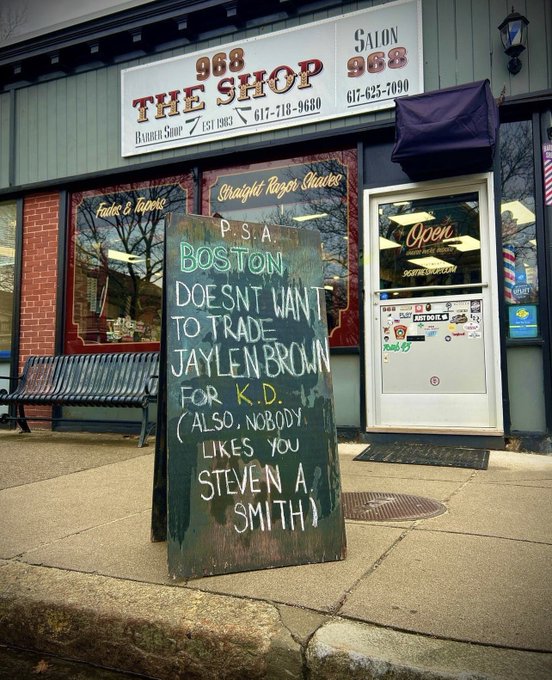 968
THE SHOP
BARBER SHOP EST 1983 617-718-9680
SALON
968
617-625-7090
Fades & Tapers
Straight Razor Shaves
Open
968THESHOP.COM
JUST DO IT.
P.S.A.
BOSTON
DOESNT WANT
TO TRADE
JAYLEN BROWN
FOR K.D.
(ALSO, NOBODY
LIKES YOU
STEVEN A.
SMITH)